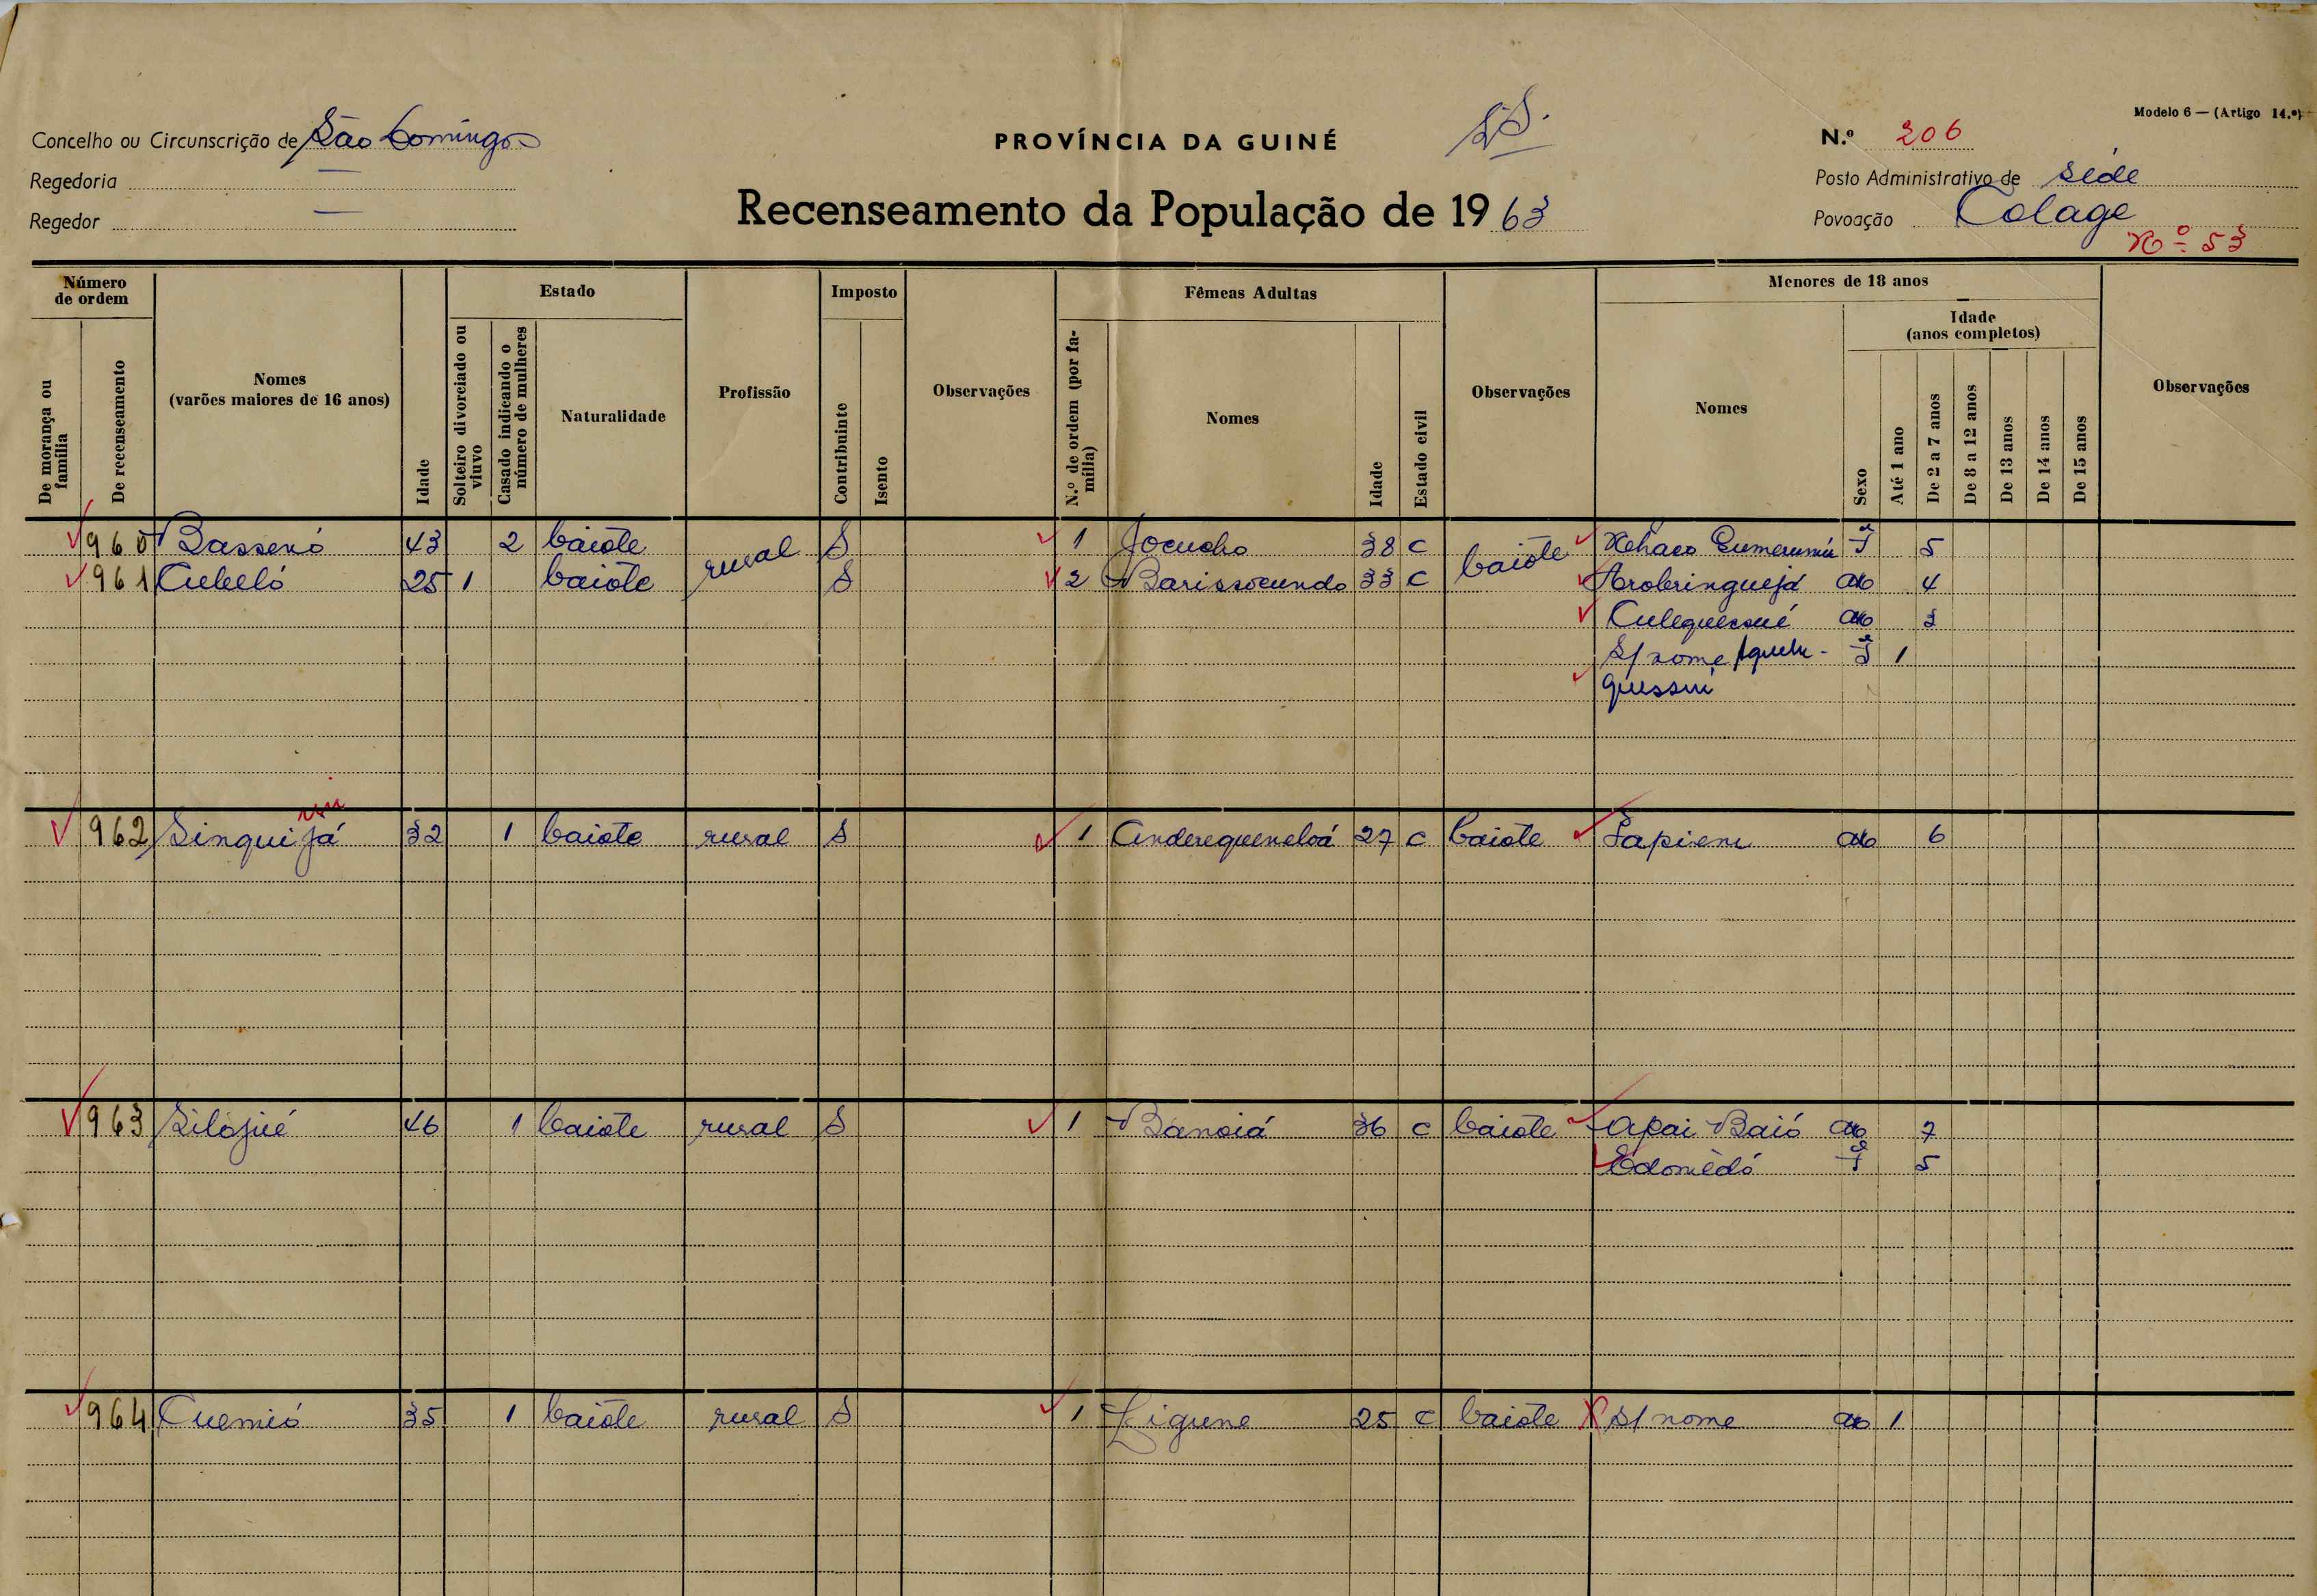 Modelo 6 — (Artigo 14.º)
Concelho ou Circunscrição de São Domingos
PROVÍNCIA DA GUINÉ
N.º 206
Regedoria —
Posto Administrativo de Séde
Regedor —
Recenseamento da População de 1963
Povoação Colage
Nº 53
Número de ordem
De morança ou família
De recenseamento
Nomes
(varões maiores de 16 anos)
Idade
Estado
Solteiro divorciado ou viuvo
Casado indicando o número de mulheres
Naturalidade
Profissão
Imposto
Contribuinte
Isento
Observações
Fêmeas Adultas
N.º de ordem (por família)
Nomes
Idade
Estado civil
Observações
Menores de 18 anos
Nomes
Idade
(anos completos)
Sexo
Até 1 ano
De 2 a 7 anos
De 8 a 12 anos
De 13 anos
De 14 anos
De 15 anos
Observações
960 Bassenó 43 2 baiote rural S 1 Jocucho 38 c baiote F 5
961 Cubeló 25 1 baiote S 2 Barissocundo 33 c Arobringuejá 4
Culequessué 3
S/ nome 1
962 Sinquijá 32 1 baiote rural S 1 27 c baiote Sapieni 6
963 Silojué 46 1 baiote rural S 1 Banoiá 36 c baiote Apai Baió 7
Edomèdó F 5
964 Cuemió 35 1 baiote rural S 1 Ligune 25 c baiote S/ nome 1